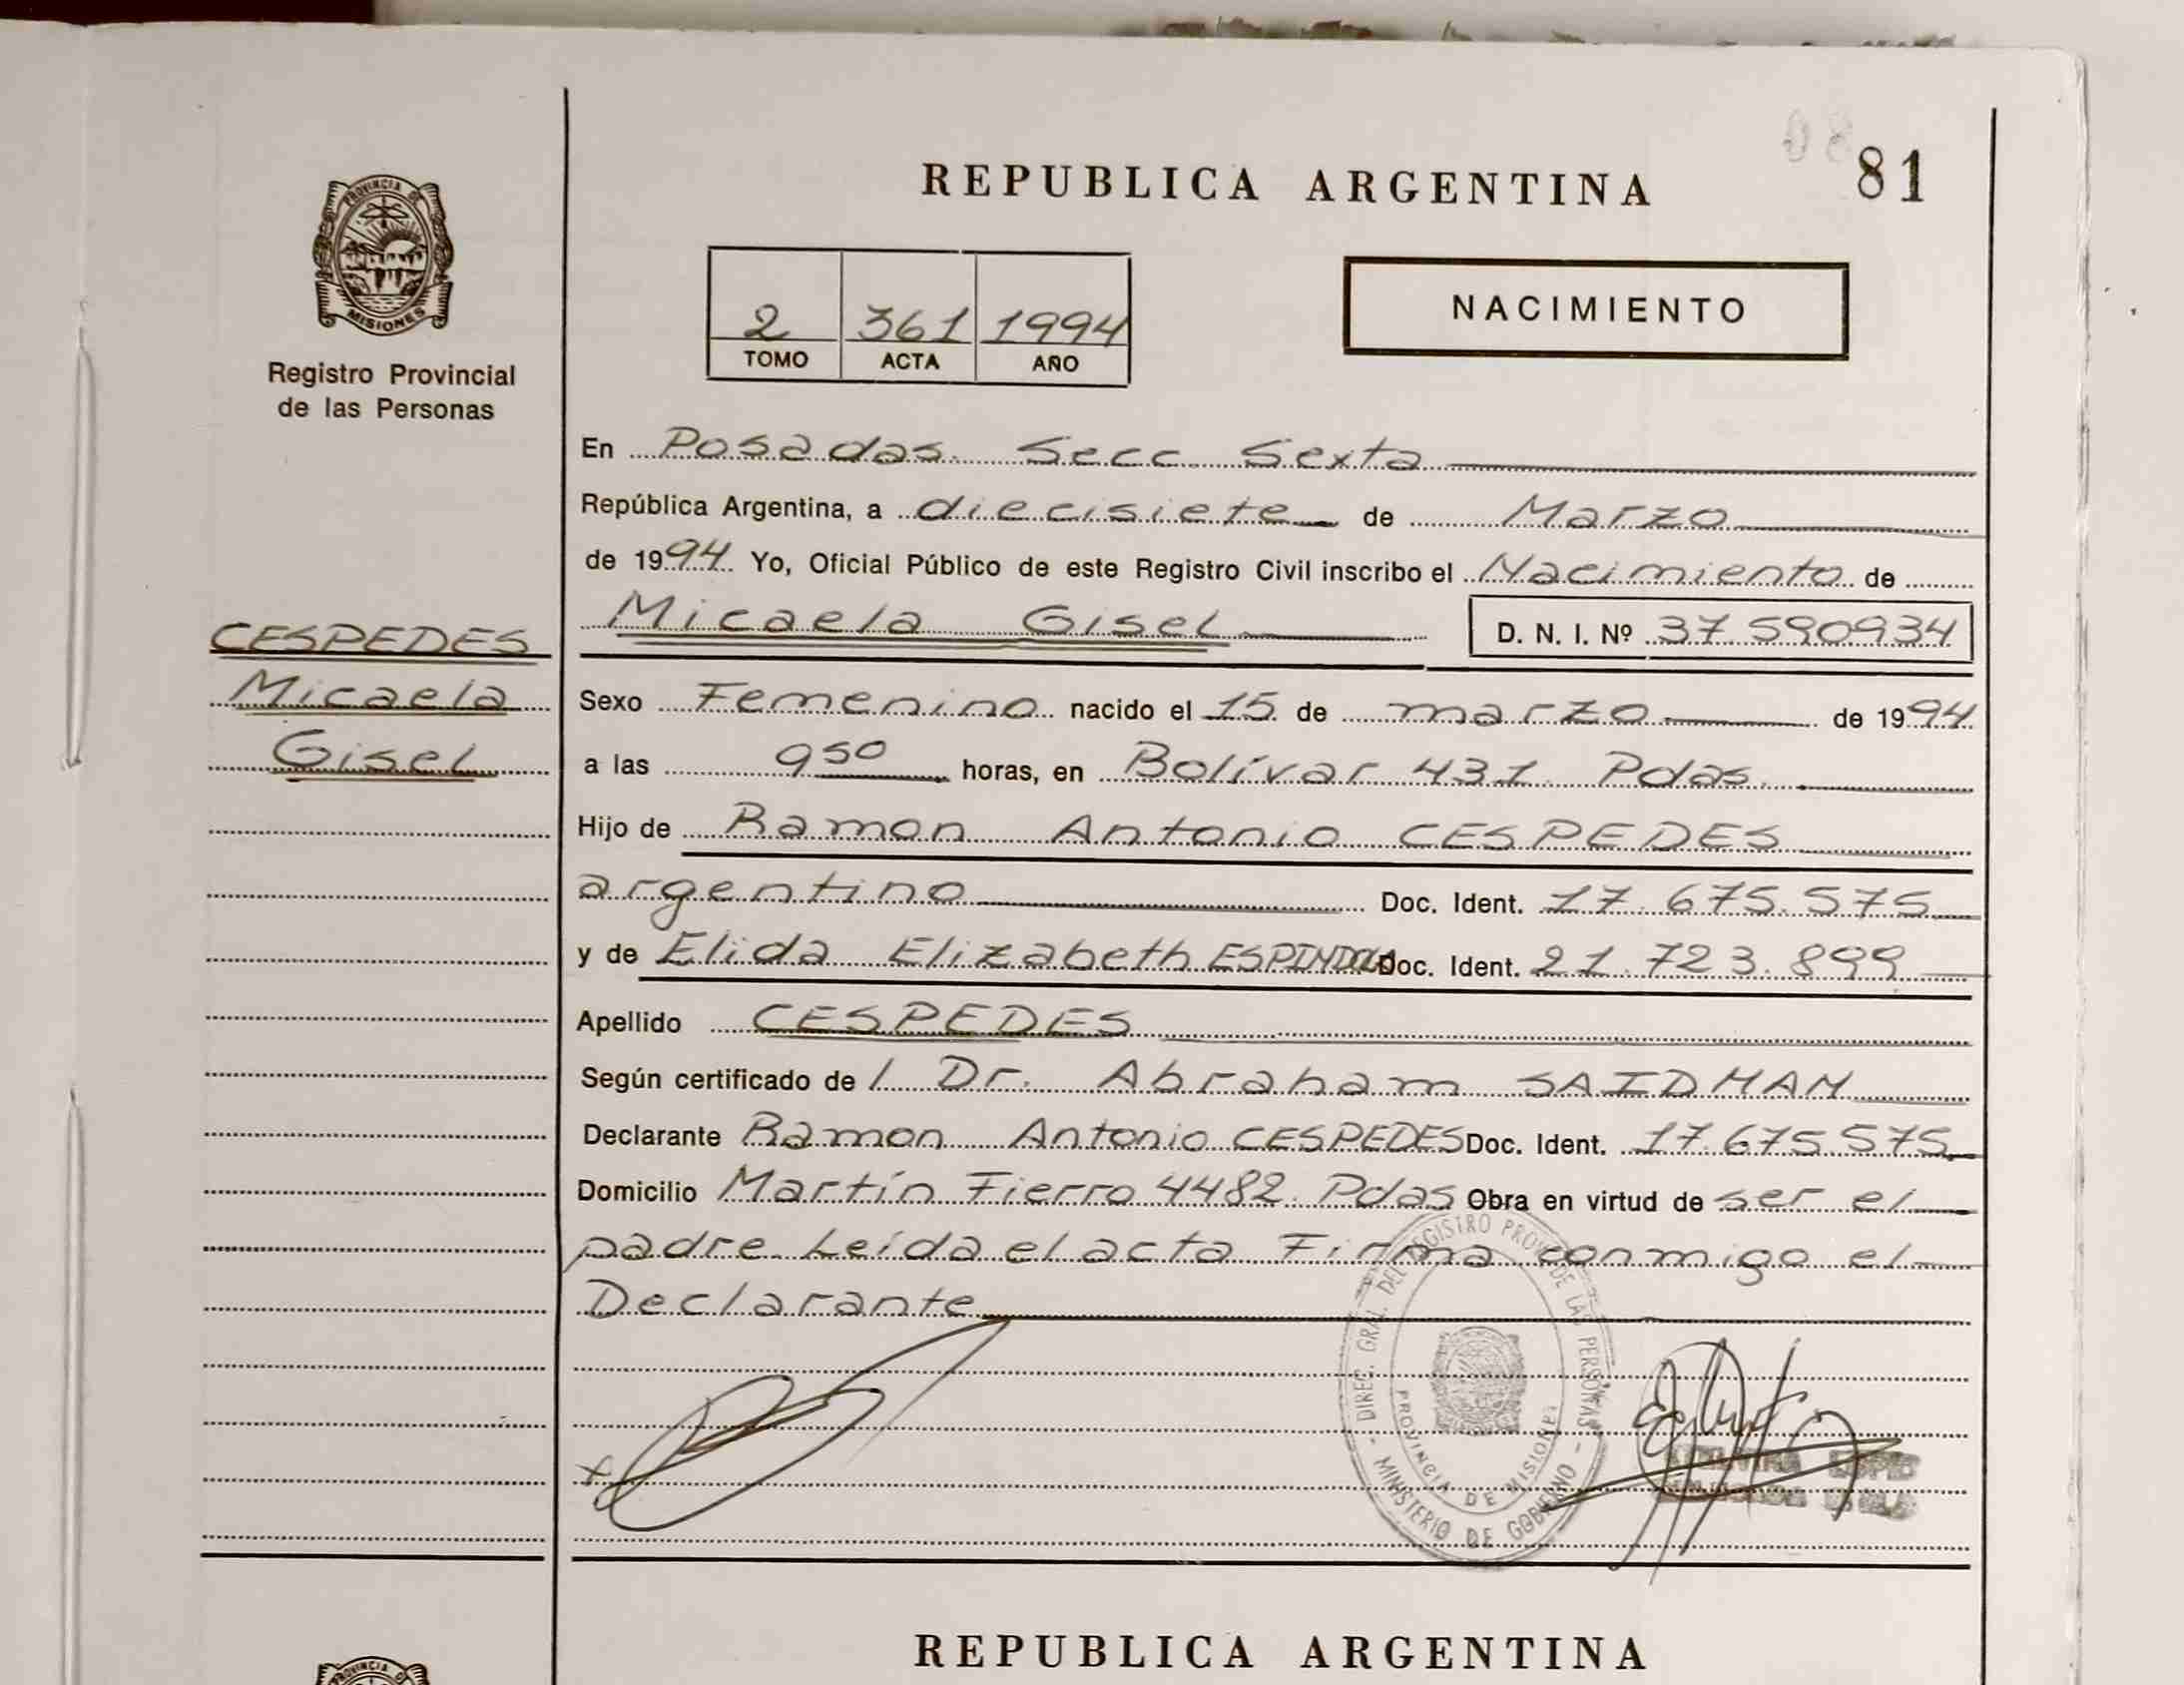 81
REPUBLICA ARGENTINA
PROVINCIA DE
MISIONES
Registro Provincial
de las Personas
2 361 1994
TOMO ACTA AÑO
NACIMIENTO
En Posadas. Secc. Sexta
República Argentina, a diecisiete de Marzo
de 1994 Yo, Oficial Público de este Registro Civil inscribo el Nacimiento de
Micaela Gisel D. N. I. Nº 37 590934
CESPEDES
Micaela
Gisel
Sexo Femenino nacido el 15 de marzo de 1994
a las 9 50 horas, en Bolívar 431. Pdas.
Hijo de Ramon Antonio CESPEDES
argentino Doc. Ident. 17.675.575
y de Elida Elizabeth ESPINDOLA Doc. Ident. 21.723.899
Apellido CESPEDES
Según certificado de l Dr. Abraham SAIDMAN
Declarante Ramon Antonio CESPEDES Doc. Ident. 17.675.575
Domicilio Martín Fierro 4482. Pdas Obra en virtud de ser el
padre. Leída el acta Firma conmigo el
Declarante
DIREC. GRAL. DEL REGISTRO PROV. DE LAS PERSONAS
PROVINCIA DE MISIONES
MINISTERIO DE GOBIERNO
REPUBLICA ARGENTINA
PROVINCIA